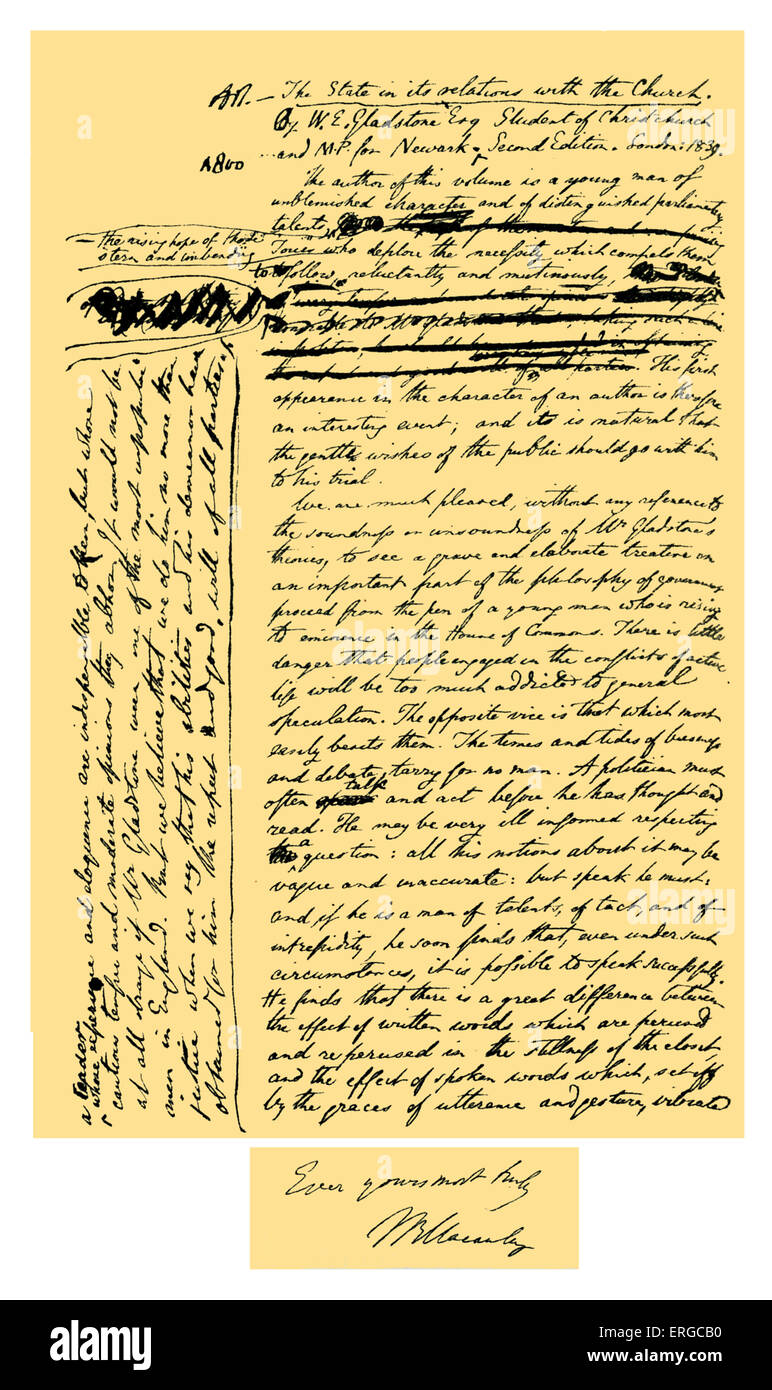 Art. — The State in its relations with the Church.
By W. E. Gladstone Esq Student of Christ church
and M.P. for Newark. Second Edition. London: 1839.
The author of this volume is a young man of
unblemished character and of distinguished parliamentary
talents,
— the rising hope of those
stern and unbending
Tories who deplore the necessity which compels them
to follow, reluctantly and mutinously,
all parties. His first
appearance in the character of an author is therefore
an interesting event; and it is natural that
the gentle wishes of the public should go with him
to his trial.
We are much pleased, without any reference to
the soundness or unsoundness of Mr Gladstone's
theories, to see a grave and elaborate treatise on
an important part of the philosophy of government
proceed from the pen of a young man who is rising
to eminence in the House of Commons. There is little
danger that people engaged in the conflicts of active
life will be too much addicted to general
speculation. The opposite vice is that which most
easily besets them. The times and tides of business
and debate tarry for no man. A politician must
often talk and act before he has thought and
read. He may be very ill informed respecting
a question: all his notions about it may be
vague and inaccurate: but speak he must:
and if he is a man of talents, of tact, and of
intrepidity, he soon finds that, even under such
circumstances, it is possible to speak successfully.
He finds that there is a great difference between
the effect of written words which are perused
and reperused in the stillness of the closet,
and the effect of spoken words which, set off
by the graces of utterance and gesture, vibrate
a leader
whose experience and eloquence are indispensable to them, but whose
cautious temper and moderate opinions they abhor. It would not be
at all strange if Mr Gladstone were one of the most unpopular
men in England. But we believe that we do him no more than
justice when we say that his abilities and his demeanor have
obtained for him the respect and good will of all parties.
Ever yours most truly
TB Macaulay
alamy
Image ID: ERGCB0
www.alamy.com